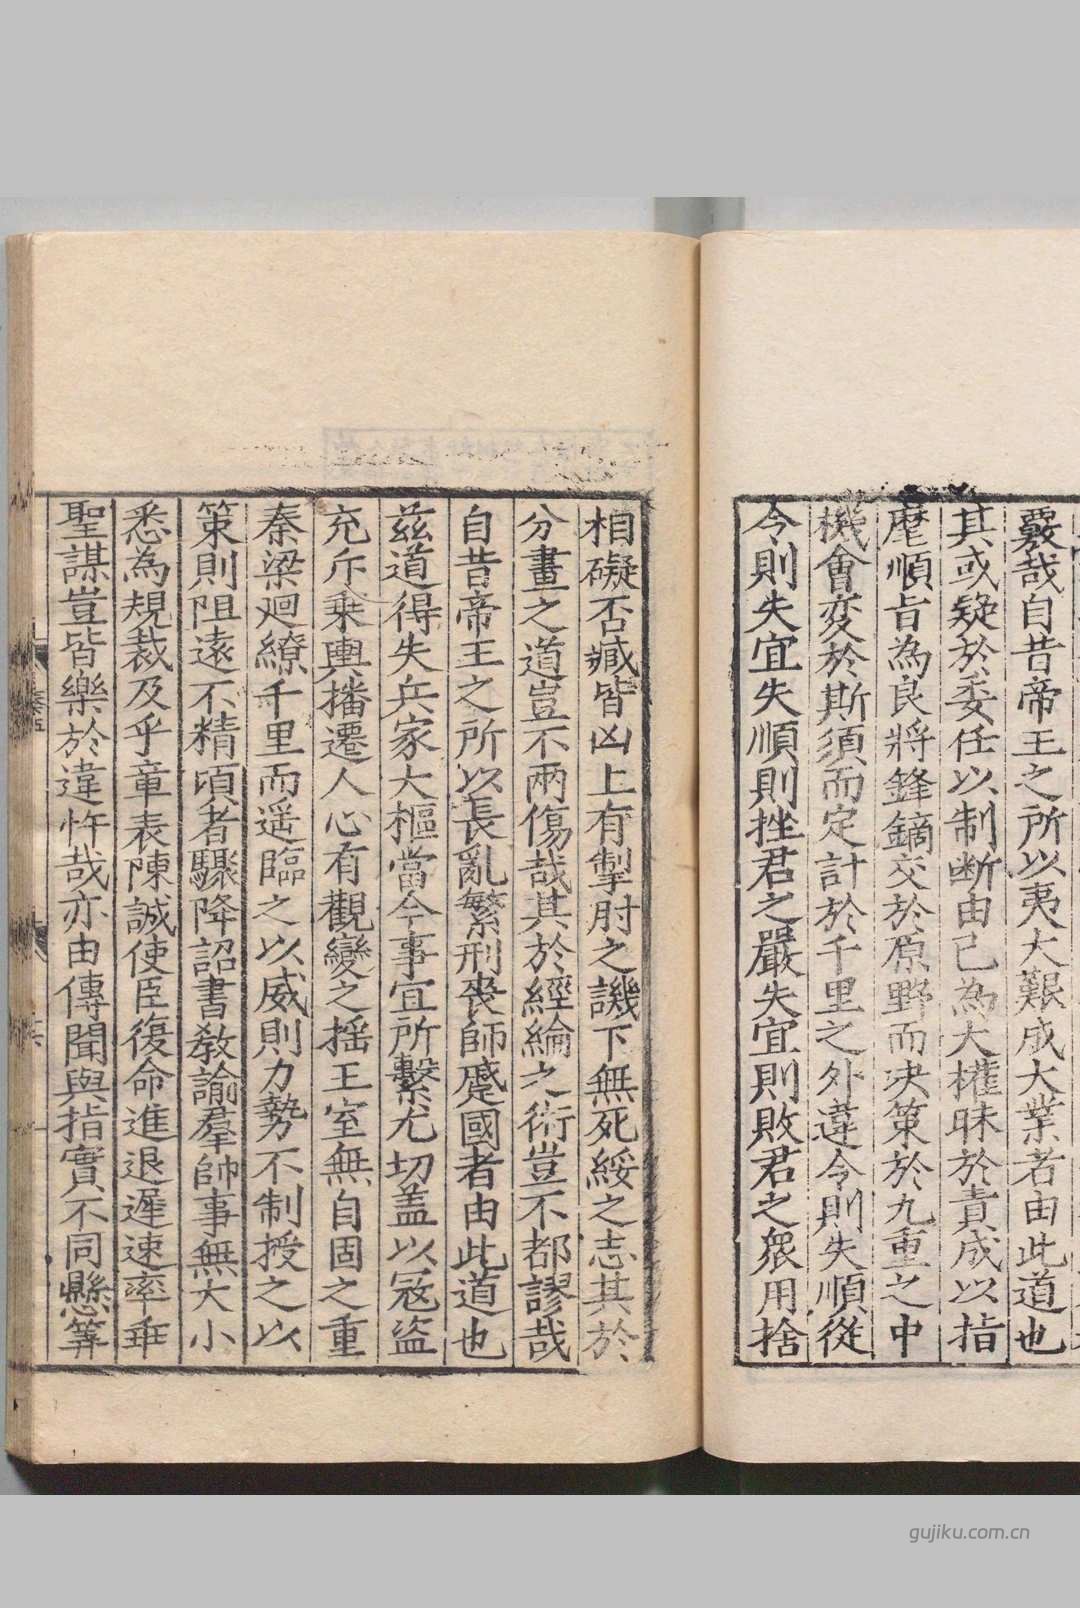 覈哉自昔帝王之所以夷大艱成大業者由此道也
其或疑於委任以制断由已為大權昧於責成以指
麾順旨為良將鋒鏑交於原野而决策於九重之中
機會变於斯須而定計於千里之外違令則失順從
令則失宜失順則挫君之嚴失宜則敗君之衆用捨
相礙否臧皆凶上有掣肘之譏下無死綏之志其於
分畫之道豈不兩傷哉其於經綸之術豈不都謬哉
自昔帝王之所以長亂繁刑喪師蹙國者由此道也
茲道得失兵家大樞當今事宜所繫尤切盖以冦盗
充斥乗輿播遷人心有觀變之揺王室無自固之重
秦梁廻繚千里而遥臨之以威則力勢不制授之以
策則阻遠不精頃者驟降詔書教諭羣帥事無大小
悉為規裁及乎章表陳誠使臣復命進退遲速率乖
聖謀豈皆樂於違忤哉亦由傳聞與指實不同懸筭
gujiku.com.cn